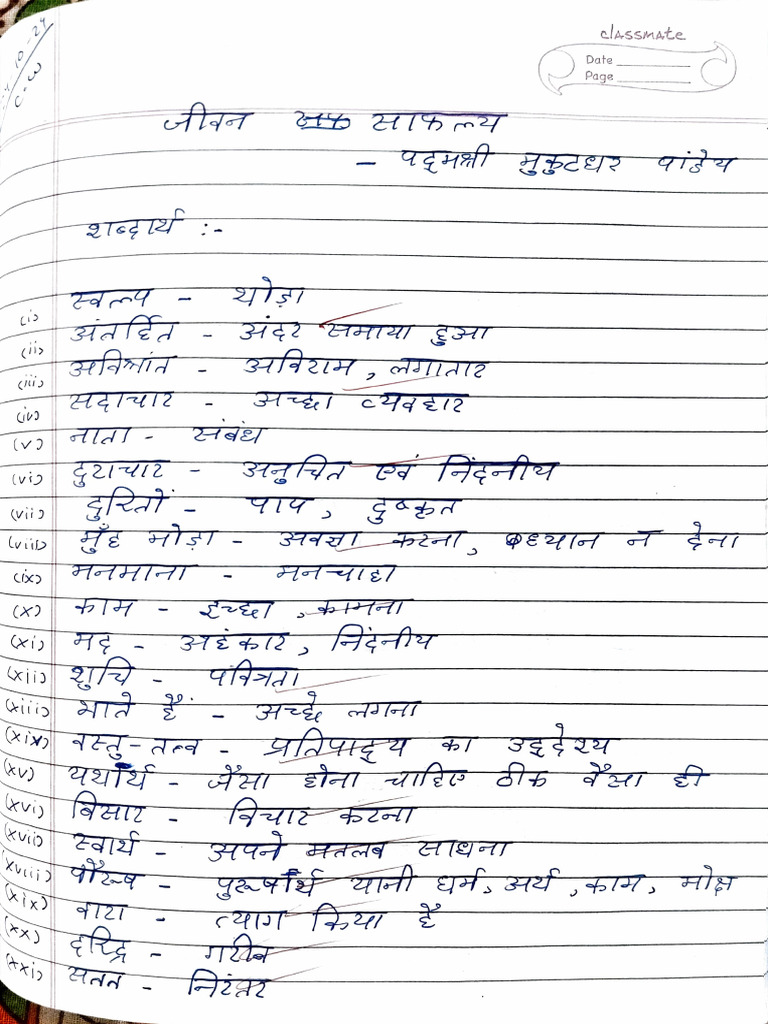 -10-24
C.W
classmate
Date
Page
जीवन साफल्य
- पद्मश्री मुकुटधर पांडेय
शब्दार्थ :-
(i) स्वल्प - थोड़ा
(ii) अंतर्हित - अंदर समाया हुआ
(iii) अविश्रांत - अविराम, लगातार
(iv) सदाचार - अच्छा व्यवहार
(v) नाता - संबंध
(vi) दुराचार - अनुचित एवं निंदनीय
(vii) दुरितों - पाप, दुष्कृत
(viii) मुँह मोड़ा - अवज्ञा करना, ध्यान न देना
(ix) मनमाना - मनचाहा
(x) काम - इच्छा, कामना
(xi) मद - अहंकार, निंदनीय
(xii) शुचि - पवित्रता
(xiii) भाते हैं - अच्छे लगना
(xix) वस्तु-तत्व - प्रतिपाद्य का उद्देश्य
(xv) यथार्थ - जैसा होना चाहिए ठीक वैसा ही
(xvi) बिसार - विचार करना
(xvii) स्वार्थ - अपने मतलब साधना
(xviii) पौरूष - पुरूषार्थ यानी धर्म, अर्थ, काम, मोक्ष
(xix) वारा - त्याग किया है
(xx) दरिद्र - गरीब
(xxi) सतत - निरंतर